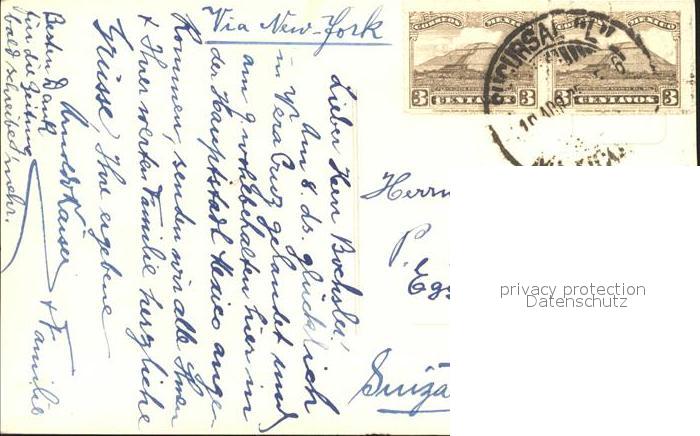 Via New-York
CORREOS MEXICO
3 CENTAVOS 3
CORREOS MEXICO
3 CENTAVOS 3
SUCURSAL "L"
Lieber Herr Bochsler!
Am 8. ds. glücklich
in Vera Cruz gelandet und
am 9 wohlbehalten hier in
der Hauptstadt Mexico ange-
kommen, senden wir alle Ihnen
+ Ihrer werten Familie herzliche
Grüsse, Ihre ergebene
Arnold Kaiser + Familie
Besten Dank
für die Zeitung
bald schreibe mehr.
Herrn
P.
Suiza
privacy protection
Datenschutz